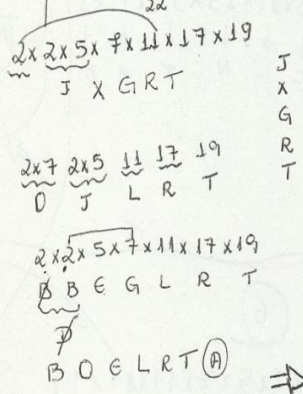 22
2 × 2 × 5 × 7 × 11 × 17 × 19
J X G R T
J
X
G
R
T
2×7 2×5 11 17 19
D J L R T
2 × 2 × 5 × 7 × 11 × 17 × 19
B B E G L R T
D
B O E L R T A
⇒